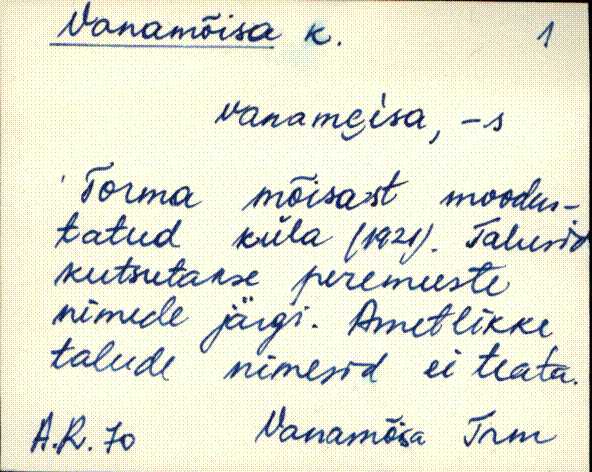 Vanamõisa k. 1
vanamẹisa, -s
Torma mõisast moodus-
tatud küla (1921). Talusid
kutsutakse peremeeste
nimede järgi. Ametlikke
talude nimesid ei teata.
A.R. 70 Vanamõisa Trm